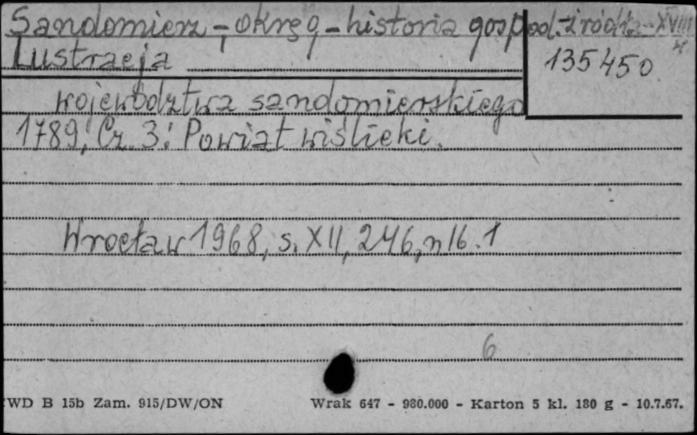 Sandomierz - okręg - historia gospod. źródła - XVIII w
Lustracja
135450
województwa sandomierskiego
1789, Cz. 3: Powiat wiślicki.
Wrocław 1968, s. XII, 246, nlb. 1
6
WD B 15b Zam. 915/DW/ON Wrak 647 - 980.000 - Karton 5 kl. 180 g - 10.7.67.